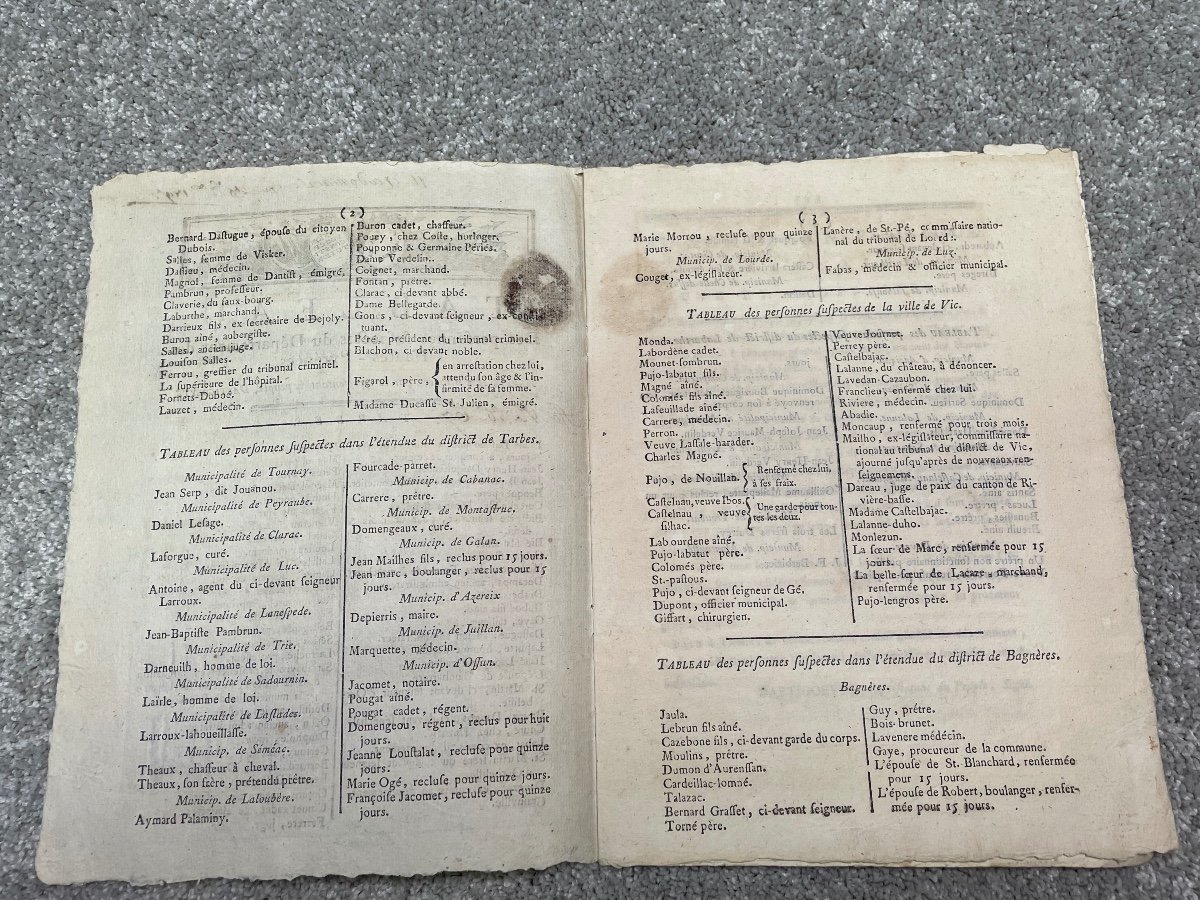 (2)
Bernard-Dastugue, épouse du citoyen
Dubois.
Salles, femme de Visker.
Dassieu, médecin.
Magnol, femme de Dantist, émigré.
Pambrun, professeur.
Claverie, du faux-bourg.
Laburthe, marchand.
Darrieux fils, ex secrétaire de Dejoly.
Buron aîné, aubergiste.
Salles, ancien juge.
Louison Salles.
Ferrou, greffier du tribunal criminel.
La supérieure de l'hôpital.
Fornets-Duboé.
Lauzet, médecin.
Buron cadet, chasseur.
Pouey, chez Coste, horloger.
Pouponne & Germaine Périés.
Dame Verdelin.
Coignet, marchand.
Fontan, prêtre.
Clarac, ci-devant abbé.
Dame Bellegarde.
Gonès, ci-devant seigneur, ex-consti-
tuant.
Péré, président du tribunal criminel.
Blachon, ci-devant noble.
Figarol, père, { en arrestation chez lui,
attendu son âge & l'in-
firmité de sa femme.
Madame Ducasse St. Julien, émigré.
TABLEAU des personnes suspectes dans l'étendue du district de Tarbes.
Municipalité de Tournay.
Jean Serp, dit Jouanou.
Municipalité de Peyraube.
Daniel Lesage.
Municipalité de Clarac.
Laforgue, curé.
Municipalité de Luc.
Antoine, agent du ci-devant seigneur
Larroux.
Municipalité de Lanespede.
Jean-Baptiste Pambrun.
Municipalité de Trie.
Darneuilh, homme de loi.
Municipalité de Sadournin.
Laïrle, homme de loi.
Municipalité de Laslades.
Larroux-lahoueillasse.
Municip. de Séméac.
Theaux, chasseur à cheval.
Theaux, son frère, prétendu prêtre.
Municip. de Laloubère.
Aymard Palaminy.
Fourcade-parret.
Municip. de Cabanac.
Carrere, prêtre.
Municip. de Montastruc.
Domengeaux, curé.
Municip. de Galan.
Jean Mailhes fils, reclus pour 15 jours.
Jean-marc, boulanger, reclus pour 15
jours.
Municip. d'Azereix
Depierris, maire.
Municip. de Juillan.
Marquette, médecin.
Municip. d'Ossun.
Jacomet, notaire.
Pougat aîné.
Pougat cadet, régent.
Domengeou, régent, reclus pour huit
jours.
Jeanne Loustalat, recluse pour quinze
jours.
Marie Ogé, recluse pour quinze jours.
Françoise Jacomet, recluse pour quinze
jours.
(3)
Marie Morrou, recluse pour quinze
jours.
Municip. de Lourde.
Couget, ex-législateur.
Lanère, de St.-Pé, commissaire natio-
nal du tribunal de Lourde.
Municip. de Luz.
Fabas, médecin & officier municipal.
TABLEAU des personnes suspectes de la ville de Vic.
Monda.
Labordène cadet.
Mounet-sombrun.
Pujo-labatut fils.
Magné aîné.
Colomés fils aîné.
Lafeuillade aîné.
Carrere, médecin.
Perron.
Veuve Lassale-harader.
Charles Magné.
Pujo, de Nouillan. { Renfermé chez lui,
à ses fraix.
Castelnau, veuve Ibos.
Castelnau, veuve
filhac. { Une garde pour tou-
tes les deux.
Labourdene aîné.
Pujo-labatut père.
Colomés père.
St.-pastous.
Pujo, ci-devant seigneur de Gé.
Dupont, officier municipal.
Giffart, chirurgien.
Veuve Journet.
Perrey père.
Castelbajac.
Lalanne, du château, à dénoncer.
Lavedan-Cazaubon.
Franclieu, enfermé chez lui.
Riviere, médecin.
Abadie.
Moncaup, renfermé pour trois mois.
Mailho, ex-législateur, commissaire na-
tional au tribunal du district de Vic,
ajourné jusqu'après de nouveaux ren-
seignemens.
Dareau, juge de paix du canton de Ri-
vière-basse.
Madame Castelbajac.
Lalanne-duho.
Monlezun.
La sœur de Marc, renfermée pour 15
jours.
La belle-sœur de Lacaze, marchand,
renfermée pour 15 jours.
Pujo-lengros père.
TABLEAU des personnes suspectes dans l'étendue du district de Bagnères.
Bagnères.
Jaula.
Lebrun fils aîné.
Cazebone fils, ci-devant garde du corps.
Moulins, prêtre.
Dumon d'Aurenssan.
Cardeillac-lomné.
Talazac.
Bernard Grasset, ci-devant seigneur.
Torné père.
Guy, prêtre.
Bois-brunet.
Lavenere médécin.
Gaye, procureur de la commune.
L'épouse de St. Blanchard, renfermée
pour 15 jours.
L'épouse de Robert, boulanger, renfer-
mée pour 15 jours.